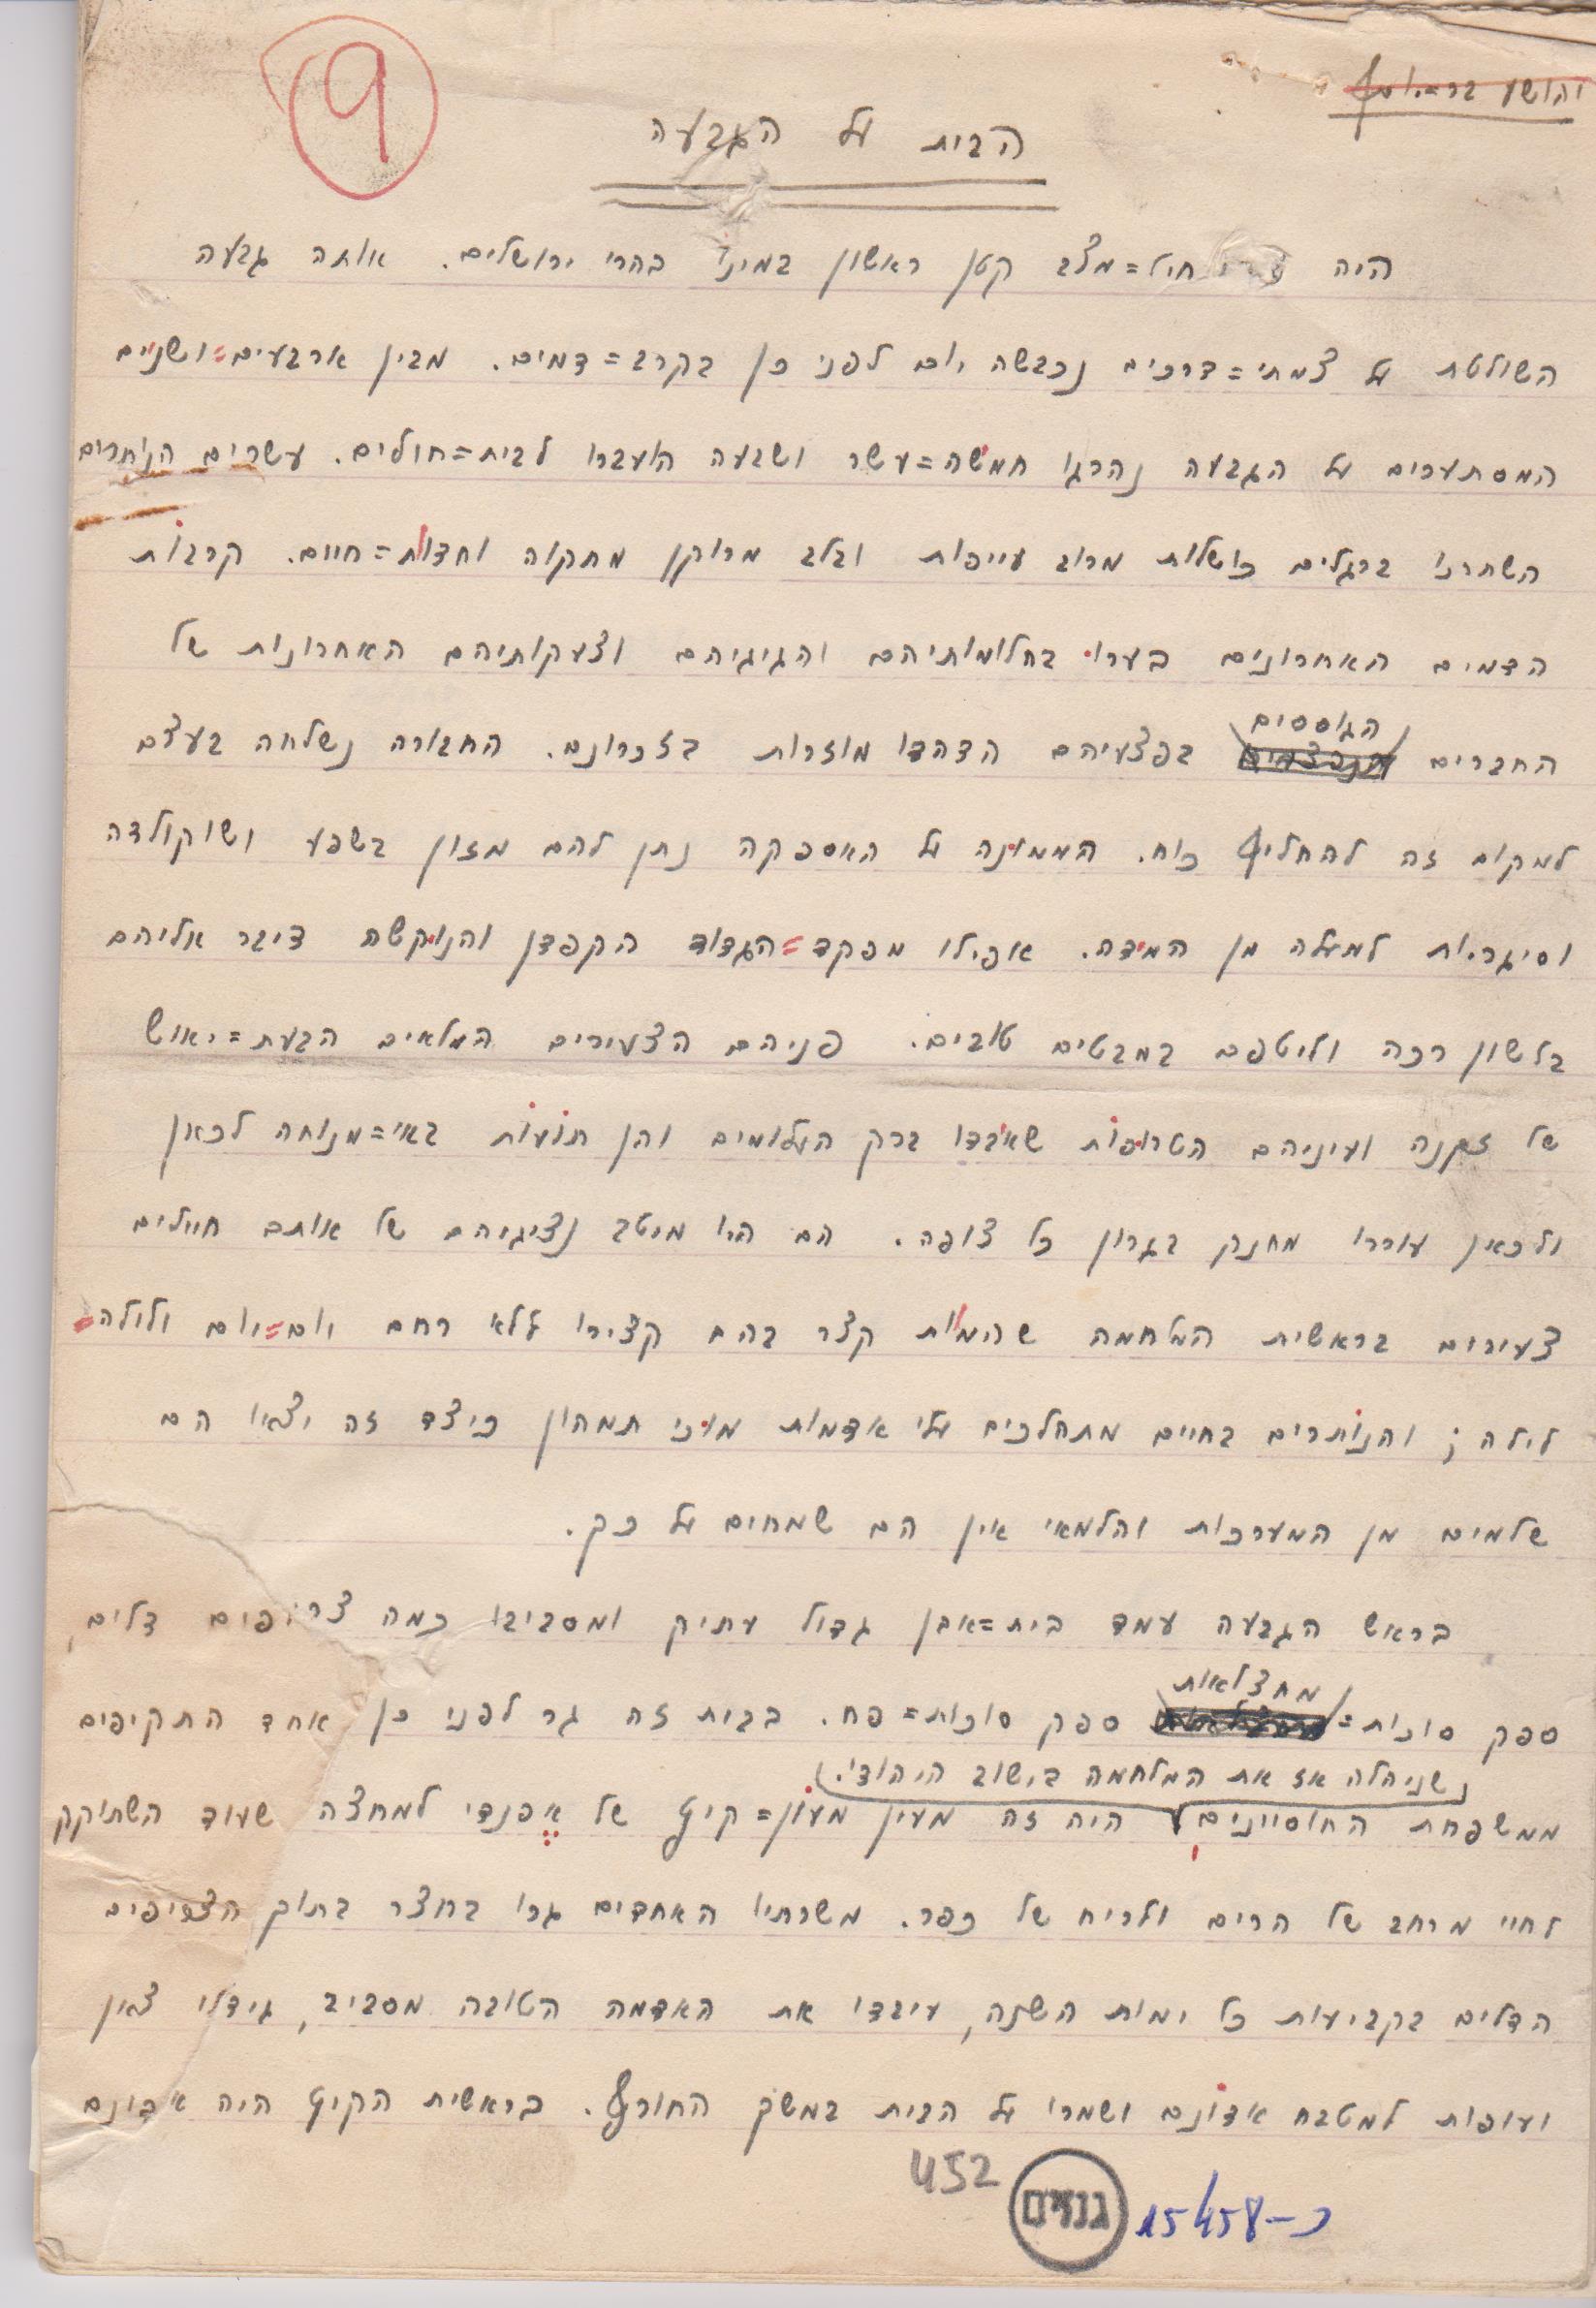 יהושע בר=יוסף
9
הבית על הגבעה
היה חיל=מצב קטן ראשון במינו בהרי ירושלים. אותה גבעה
השולטת על צמתי=דרכים נכבשה יום לפני כן בקרב=דמים. מבין ארבעים=ושניים
המסתערים על הגבעה נהרגו חמשה=עשר ושבעה הועברו לבית=חולים. עשרים הנותרים
השתרכו ברגלים כושלות מרוב עייפות ובלב מרוקן מתקוה וחדות=חיים. קרבות
הדמים האחרונים בערו בחלומותיהם והגיגיהם וצעקותיהם האחרונות של
החברים הגוססים בפצעיהם הדהדו מוזרות בזכרונם. החבורה נשלחה בעצם
למקום זה להחליף כוח. הממונה על האספקה נתן להם מזון בשפע ושוקולדה
וסיגריות למעלה מן המידה. אפילו מפקד=הגדוד הקפדן והנוקשה דיבר אליהם
בלשון רכה וליטפם במבטים טובים. פניהם הצעירים המלאים הבעת=יאוש
של זקנה ועיניהם הטרופות שאבדו ברק העלומים והן תועות באי=מנוחה לכאן
ולכאן עוררו מחנק בגרון כל צופה. הם היו מיטב נציגיהם של אותם חיילים
צעירים בראשית המלחמה שהמות קצר בהם קצירו ללא רחם יום=יום ולילה=
לילה; והנותרים בחיים מתהלכים עלי אדמות מוכי תמהון כיצד זה יצאו הם
שלמים מן המערכות והלמאי אין הם שמחים על כך.
בראש הגבעה עמד בית=אבן גדול עתיק ומסביבו כמה צריפים דלים,
ספק סוכות=מחצלאות ספק סוכות=פח. בבית זה גר לפני כן אחד התקיפים
ממשפחת החוסיינים שניהלה אז את המלחמה בישוב היהודי. היה זה מעין מעון=קיץ של אפנדי למחצה שעוד השתוקק
לחיי מרחב של הרים ולריח של כפר. משרתיו האחדים גרו בחצר בתוך הצריפים
הדלים בקביעות כל ימות השנה, עיבדו את האדמה הטובה מסביב, גידלו צאן
ועופות למטבח אדונם ושמרו על הבית במשך החורף. בראשית הקיץ היה אדונם
452
גנזים
15458-כ